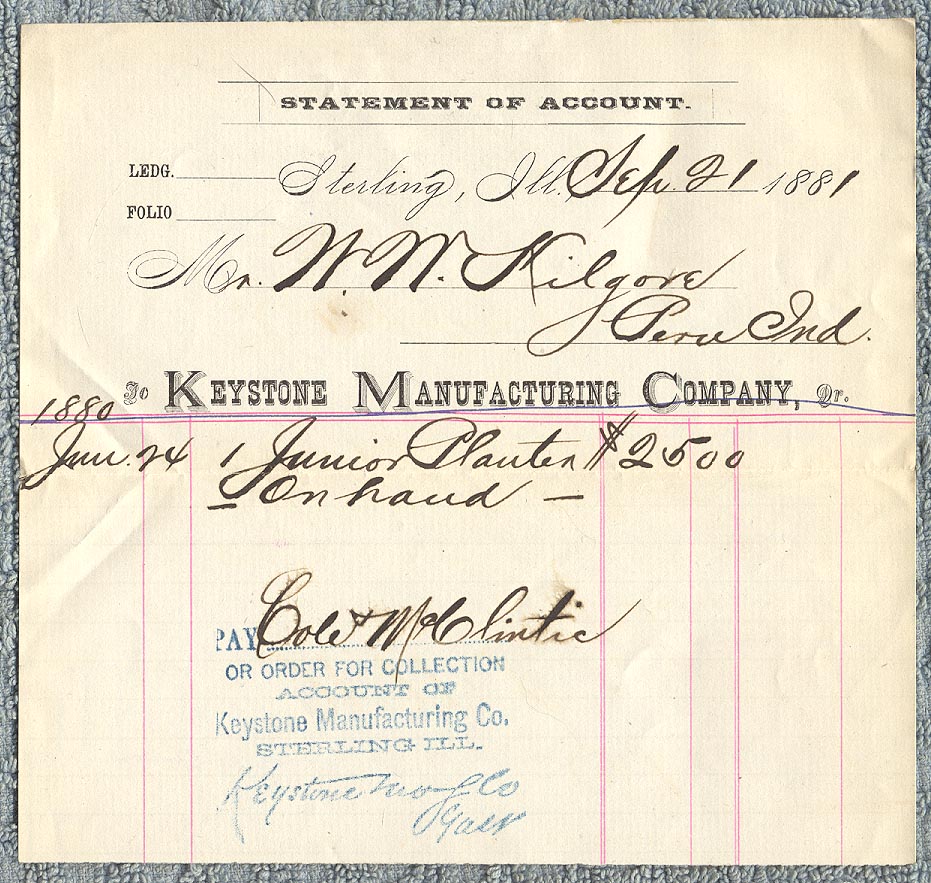 STATEMENT OF ACCOUNT.
LEDG.
Sterling, Ill. Sep. 21 1881
FOLIO
Mr. W. W. Kilgore
Peru Ind.
To KEYSTONE MANUFACTURING COMPANY, Dr.
1880
Jun. 24 1 Junior Planter $ 25 00
- On hand -
PAY Cole & McClintic
OR ORDER FOR COLLECTION
ACCOUNT OF
Keystone Manufacturing Co.
STERLING ILL.
Keystone Mfg Co